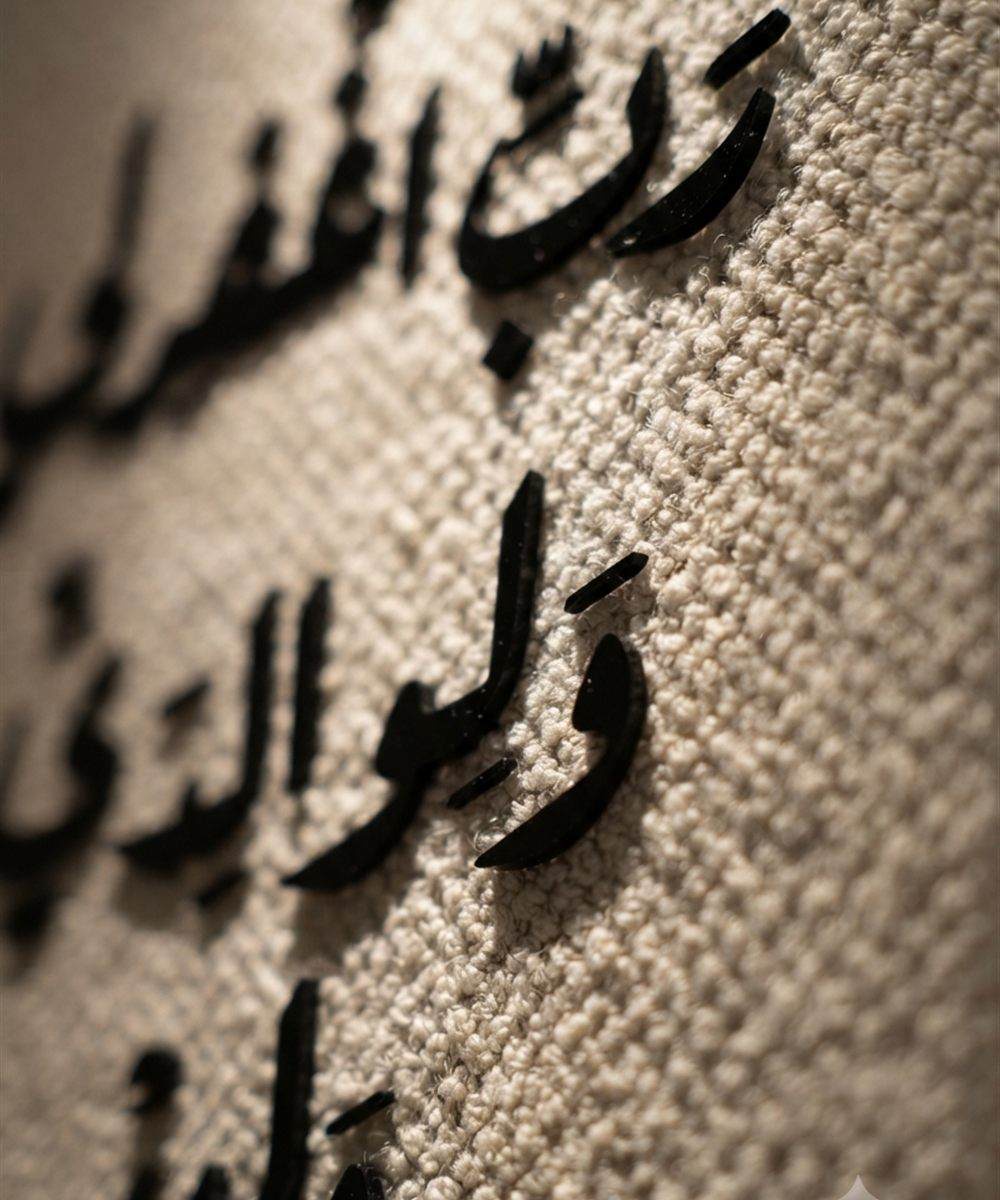 رَبِّ اغفر لي
وَلِوَالِدَيَّ